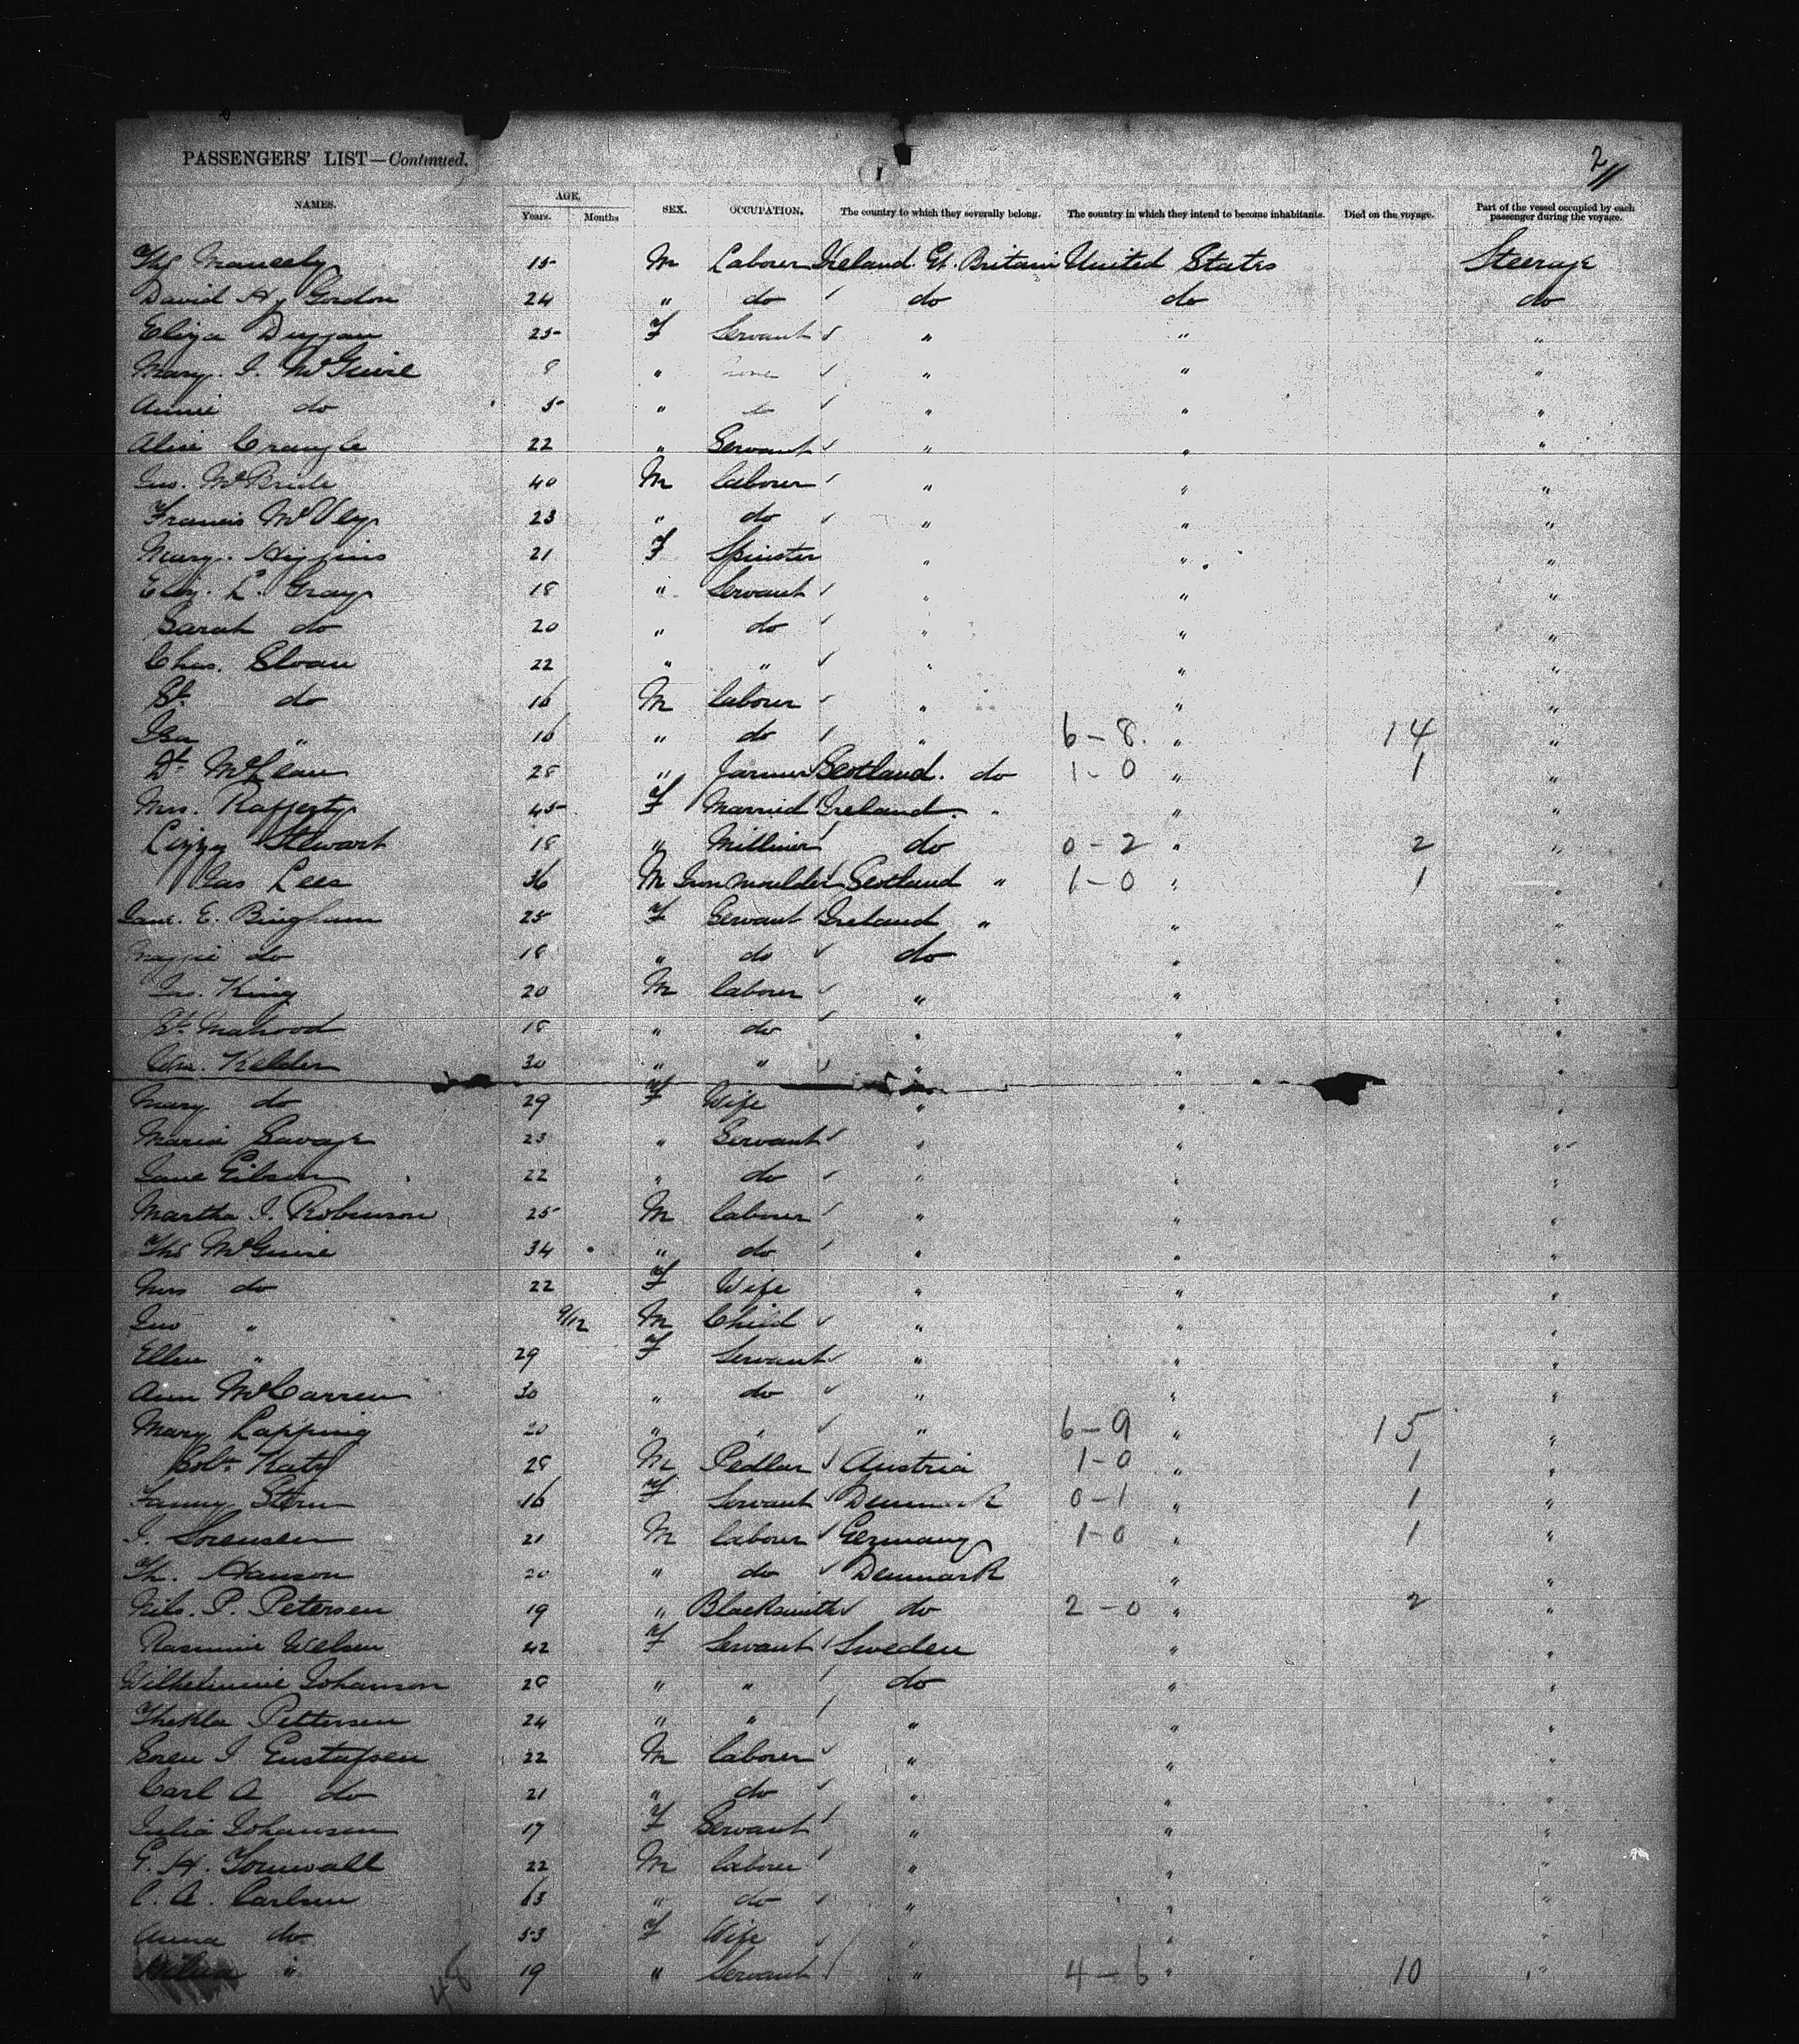 PASSENGERS' LIST—Continued.
1
2
NAMES. AGE. Years. Months SEX. OCCUPATION. The country to which they severally belong. The country in which they intend to become inhabitants. Died on the voyage. Part of the vessel occupied by each passenger during the voyage.
Ths 15 M Labourer Ireland. Gt. Britain United States Steerage
David Hy Gordon 24 " do do do do
Eliza Duggan 25 F Servant " " "
Mary. I. McGuire 8 " none " " "
Annie do 5 " do " " "
Alice Crangle 22 " Servant " " "
Jno. McBride 40 M labourer " " "
Francis 23 " do " " "
Mary. Higgins 21 F Spinster " " "
Eliz. L. Gray 18 " Servant " " "
Sarah do 20 " do " " "
Chas. Sloan 22 " " " " "
do 16 M labourer " " "
" 16 " do " 6-8 " 14 "
McLean 28 " farmer Scotland. do 1-0 " 1 "
Mrs. Rafferty 45 F Married Ireland. " " "
Lizzy Stewart 18 " Milliner do 0-2 " 2 "
Jas Lees 36 M Iron moulder Scotland " 1-0 " 1 "
Jane. E. Bingham 25 F Servant Ireland " " "
Maggie do 18 " do do " "
Jno. King 20 M labourer " " "
Mahood 18 " do " " "
Kelder 30 " " " " "
Mary do 29 F Wife " " "
Maria Savage 23 " Servant " " "
Jane Gibson 22 " do " " "
Martha I. Robinson 25 M labourer " " "
Ths McGuire 34 " do " " "
Mrs do 22 F Wife " " "
Jno " 9/12 M Child " " "
Ellen " 29 F Servant " " "
Ann McCarren 30 " do " " "
Mary Lapping 20 " " " 6-9 " 15 "
Katz 28 M Pedlar Austria 1-0 " 1 "
Fanny Stern 16 F Servant Denmark 0-1 " 1 "
I. Sorensen 21 M labourer Germany 1-0 " 1 "
Th. Hanson 20 " do Denmark " "
Nils. P. Petersen 19 " Blacksmith do 2-0 " 2 "
Rasmine 42 F Servant Sweden " "
Wilhelmine Johanson 28 " " do " "
Thekla Pettersen 24 " " " " "
Soren I Gustafsen 22 M labourer " " "
Carl A do 21 " do " " "
Julia Johansen 17 F Servant " " "
G. H. 22 M labourer " " "
C. A. Carlsen 63 " do " " "
Anna do 53 F Wife " " "
" 19 " Servant " 4-6 " 10 "
48